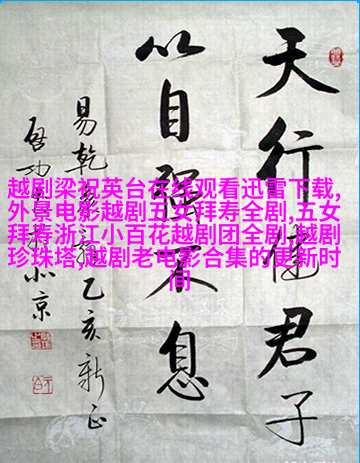 越剧梁祝英台在线观看迅雷下载,
外景电影越剧五女拜寿全剧,五女
拜寿浙江小百花越剧团全剧,越剧
珍珠塔,越剧老电影合集的更新时
间
天行健君子
以自强不息
易乾 乙亥新正
启功 北京